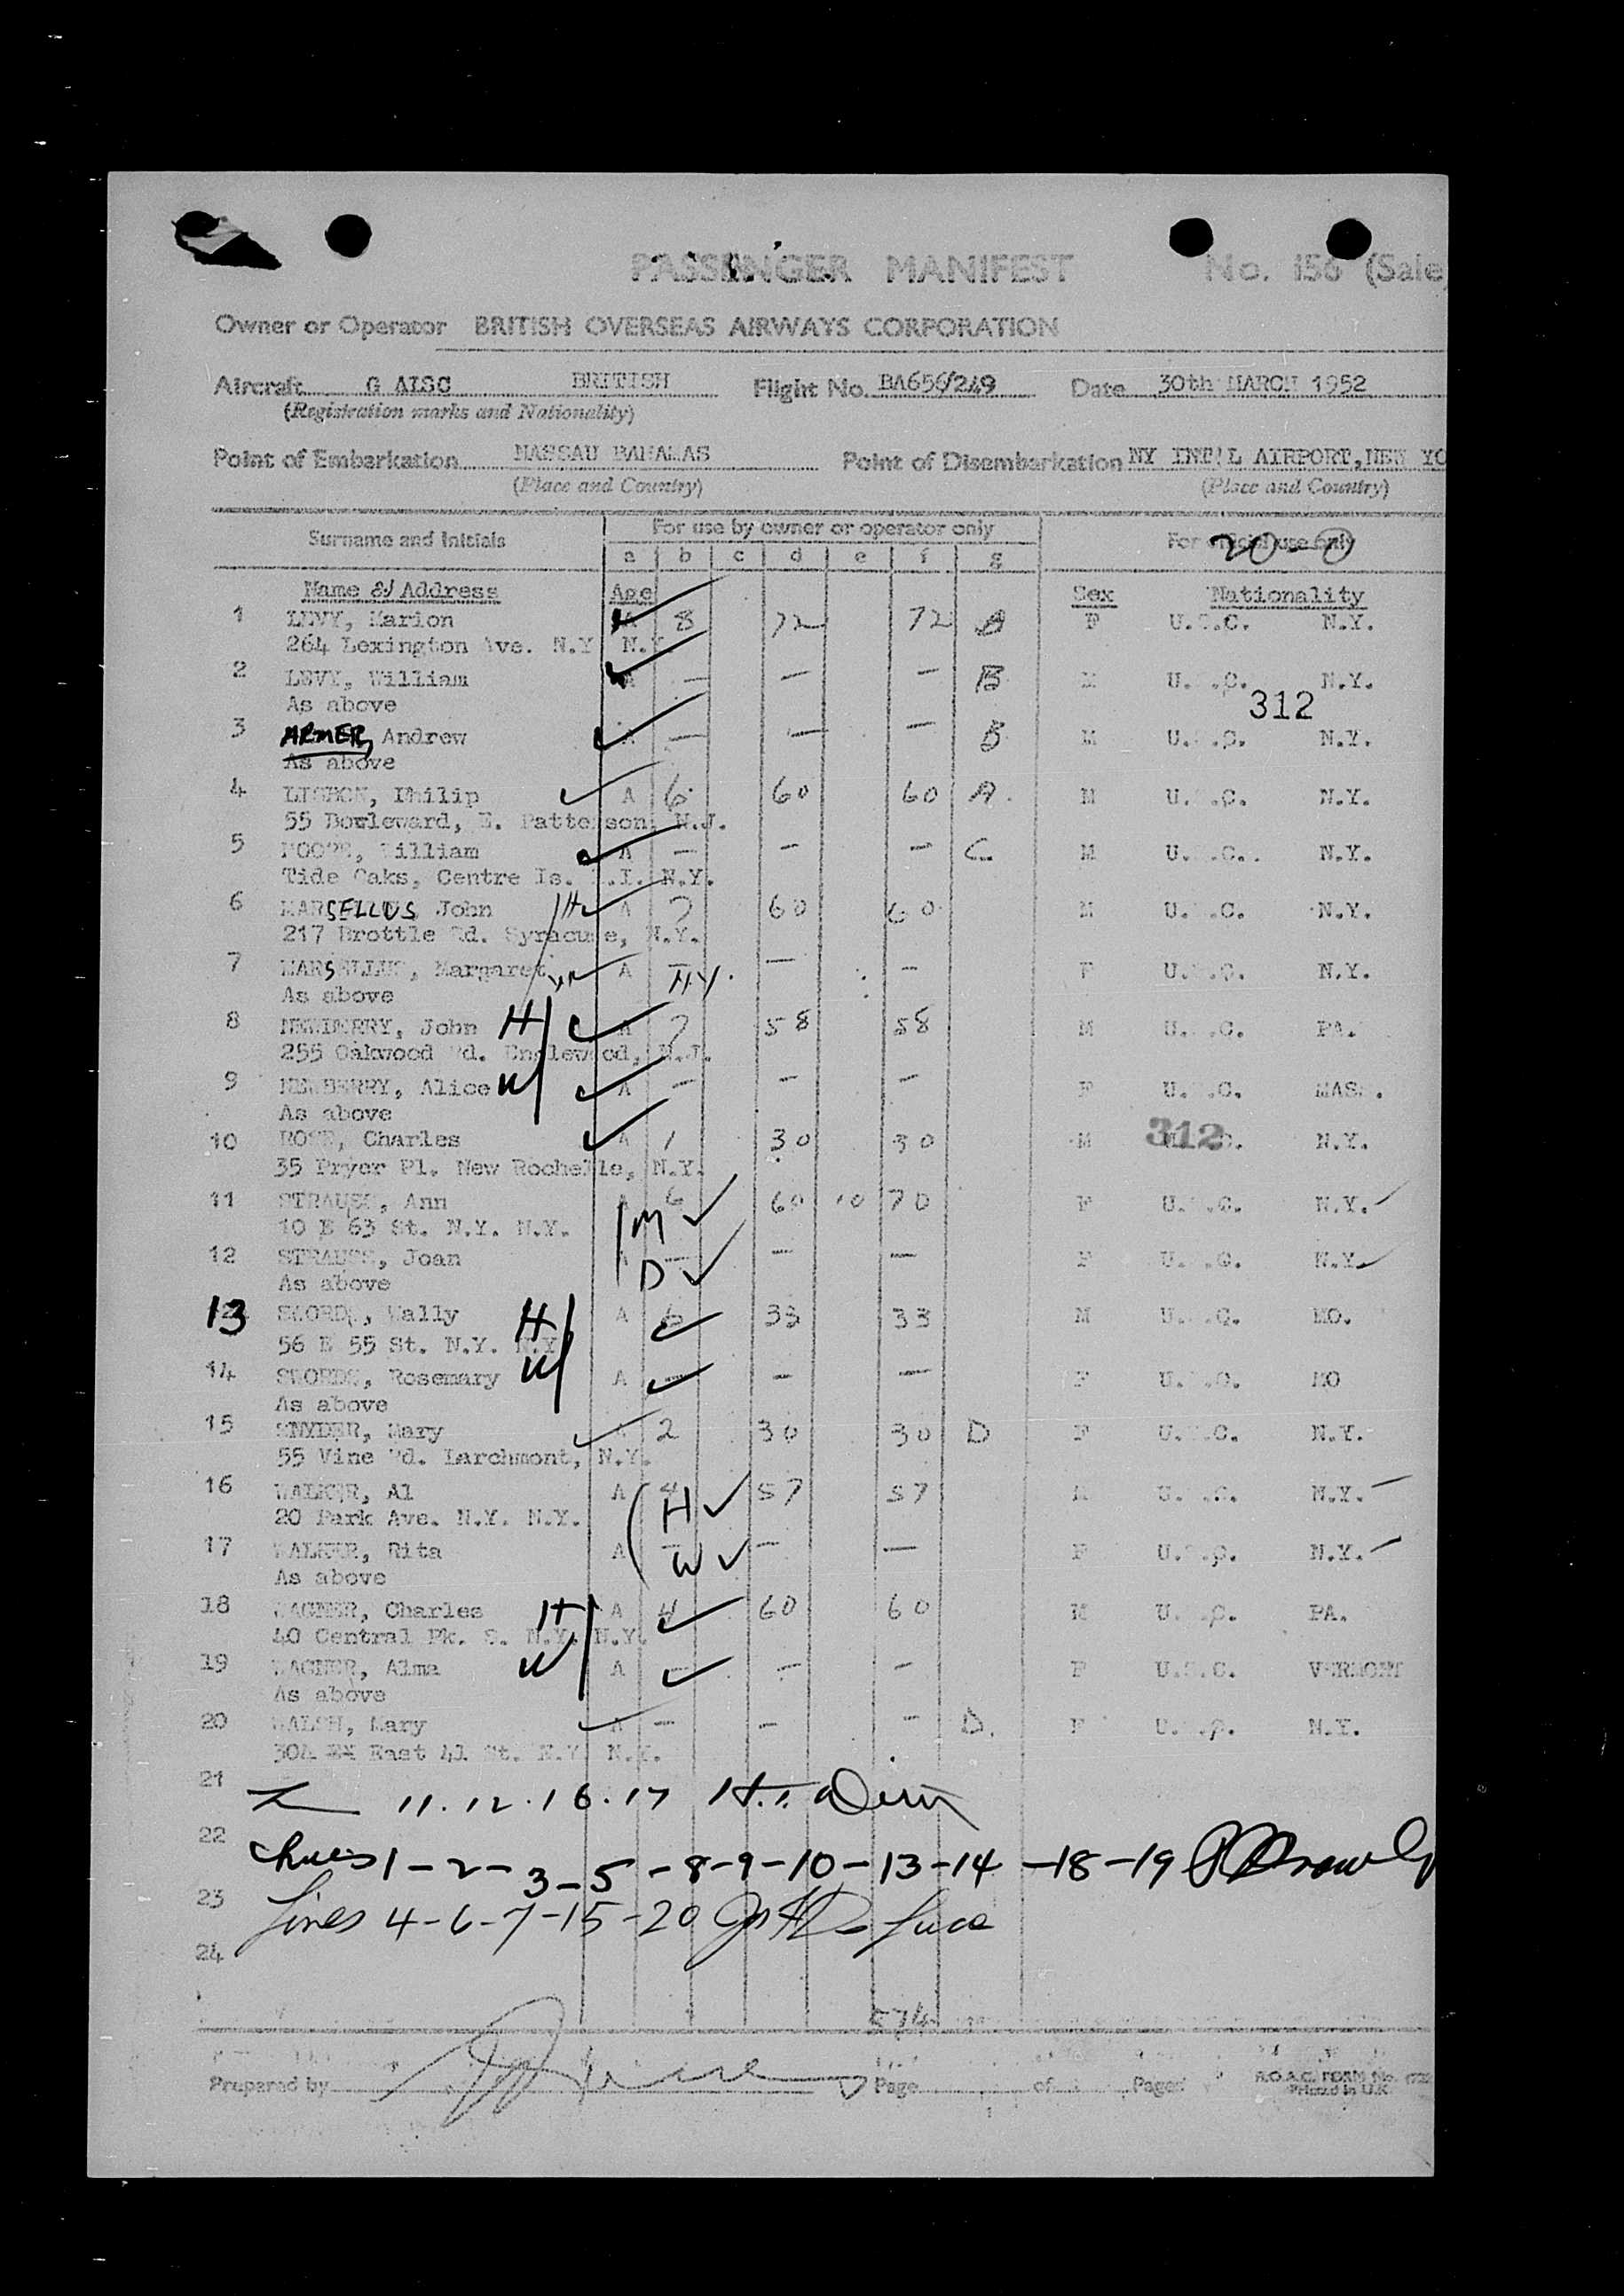 PASSENGER MANIFEST No. 156 (Sale
Owner or Operator BRITISH OVERSEAS AIRWAYS CORPORATION
Aircraft BRITISH Flight No. BA656/249 Date 30th MARCH 1952
(Registration marks and Nationality)
Point of Embarkation NASSAU BAHAMAS Point of Disembarkation NY INT'L AIRPORT, NEW YO
(Place and Country) (Place and Country)
Surname and Initials For use by owner or operator only For official use only 20-0
a b c d e f g
Name & Address Age Sex Nationality
1 LEVY, Marion A 8 72 72 B F U.S.C. N.Y.
264 Lexington Ave. N.Y. N.Y.
2 LEVY, William A — — — B M U.S.C. N.Y.
As above 312
3 ARMER, Andrew A — — — B M U.S.C. N.Y.
As above
4 Philip A 6 60 60 A. M U.S.C. N.Y.
55 Bouleward, E. Patterson N.J.
5 William A — — — C. M U.S.C. N.Y.
Tide Oaks, Centre Is. L.I. N.Y.
6 MARSELLUS, John H A 7 60 60 M U.S.C. N.Y.
217 Brottle Rd. Syracuse, N.Y.
7 MARSELLUS, Margaret W A — — — F U.S.C. N.Y.
As above
8 NEWBERRY, John H A 7 58 58 M U.S.C. PA.
255 Oakwood Rd. Englewood, N.J.
9 NEWBERRY, Alice W A — — — F U.S.C. MASS.
As above
10 ROSE, Charles A 1 30 30 M U.S.C. N.Y.
312
35 Pryer Pl. New Rochelle, N.Y.
11 STRAUSS, Ann A 6 60 10 70 F U.S.C. N.Y.
10 E 63 St. N.Y. N.Y. M
12 STRAUSS, Joan A — — — F U.S.C. N.Y.
As above D
13 SWORDS, Wally H A 6 33 33 M U.S.C. MO.
56 E 55 St. N.Y. N.Y.
14 SWORDS, Rosemary W A — — — F U.S.C. MO
As above
15 SNYDER, Mary A 2 30 30 D F U.S.C. N.Y.
55 Vine Rd. Larchmont, N.Y.
16 WALKER, Al A 4 H 57 57 M U.S.C. N.Y.
20 Park Ave. N.Y. N.Y.
17 WALKER, Rita A — W — — F U.S.C. N.Y.
As above
18 WAGNER, Charles H A 4 60 60 M U.S.C. PA.
40 Central Pk. S. N.Y. N.Y.
19 WAGNER, Alma W A — — — F U.S.C. VERMONT
As above
20 WALSH, Mary A — — — D. F U.S.C. N.Y.
304 East 41 St. N.Y. N.Y.
21 11.12.16.17
22 Lines 1-2-3-5-8-9-10-13-14-18-19
23 Lines 4-6-7-15-20
24
574
Prepared by Page of Pages B.O.A.C. FORM No.
Printed in U.K.